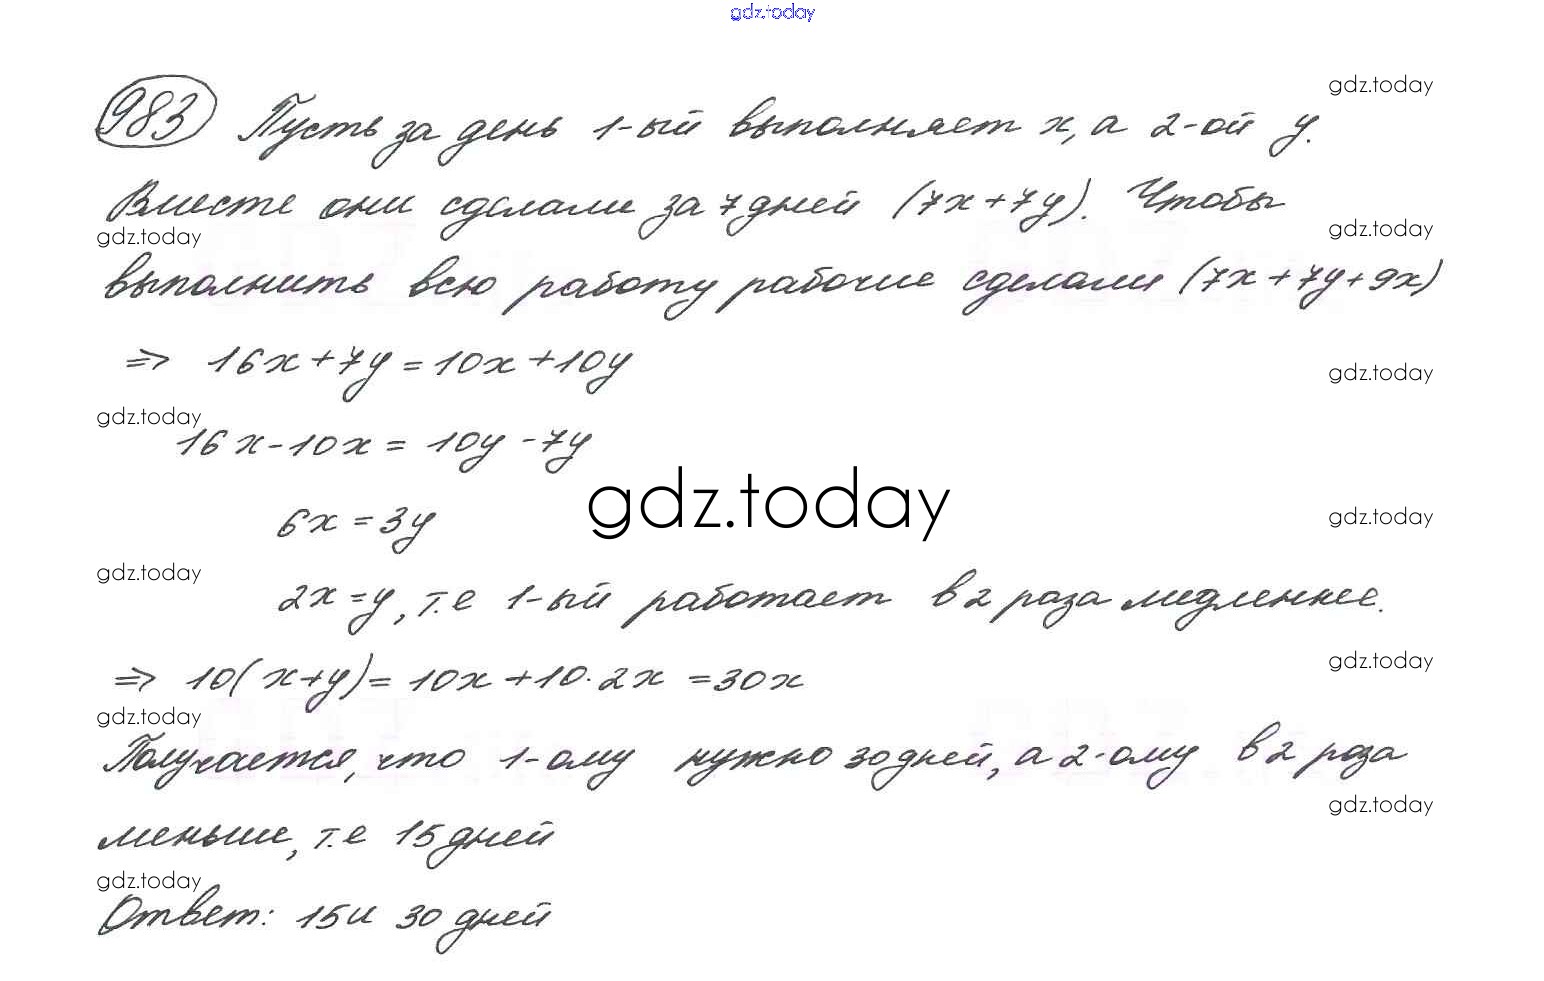 gdz.today
983 Пусть за день 1-ый выполняет x, а 2-ой y.
gdz.today
Вместе они сделали за 7 дней (7x+7y). Чтобы
gdz.today
gdz.today
выполнить всю работу рабочие сделали (7x+7y+9x)
=> 16x+7y=10x+10y
gdz.today
gdz.today
16x-10x=10y-7y
gdz.today
6x=3y
gdz.today
gdz.today
2x=y, т.е 1-ый работает в 2 раза медленнее.
gdz.today
=> 10(x+y)=10x+10·2x=30x
gdz.today
Получается, что 1-ому нужно 30 дней, а 2-ому в 2 раза
gdz.today
меньше, т.е 15 дней
gdz.today
Ответ: 15 и 30 дней